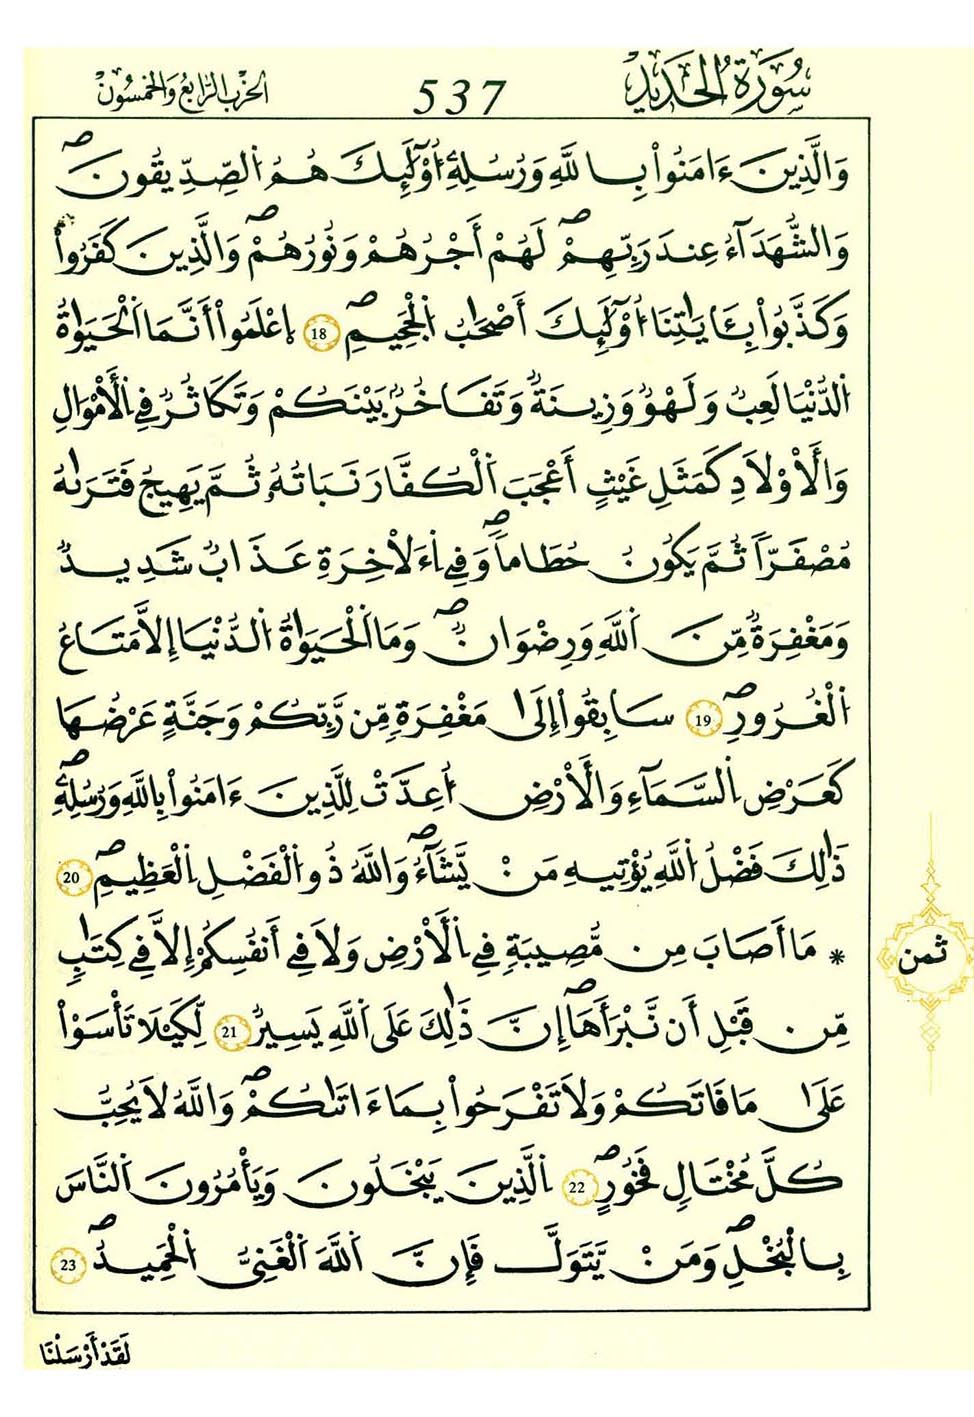 سُورَةُ الْحَدِيدِ
537
الحِزْبُ الرَّابِعُ وَالخَمْسُونَ
وَالَّذِينَ ءَامَنُواْ بِاللَّهِ وَرُسُلِهِۦٓ أُوْلَٰٓئِكَ هُمُ اُ۬لصِّدِّيقُونَۖ
وَالشُّهَدَآءُ عِندَ رَبِّهِمْۖ لَهُمْ أَجْرُهُمْ وَنُورُهُمْۖ وَالَّذِينَ كَفَرُواْ
وَكَذَّبُواْ بِـَٔايَٰتِنَآ أُوْلَٰٓئِكَ أَصْحَٰبُ اُ۬لْجَحِيمِۖ 18 اِ۪عْلَمُوٓاْ أَنَّمَا اَ۬لْحَيَوٰةُ
اُ۬لدُّنْيَا لَعِبٌ وَلَهْوٌ وَزِينَةٌ وَتَفَاخُرٌۢ بَيْنَكُمْ وَتَكَاثُرٌ فِي اِ۬لْأَمْوَٰلِ
وَالْأَوْلَٰدِ كَمَثَلِ غَيْثٍ أَعْجَبَ اَ۬لْكُفَّارَ نَبَاتُهُۥ ثُمَّ يَهِيجُ فَتَرَىٰهُ
مُصْفَرّاٗ ثُمَّ يَكُونُ حُطَٰماٗۖ وَفِي اِ۬ءَلْأَخِرَةِ عَذَابٌ شَدِيدٌ
وَمَغْفِرَةٌ مِّنَ اَ۬للَّهِ وَرِضْوَٰنٌۖ وَمَا اَ۬لْحَيَوٰةُ اُ۬لدُّنْيَآ إِلَّا مَتَٰعُ
اُ۬لْغُرُورِۖ 19 سَابِقُوٓاْ إِلَىٰ مَغْفِرَةٍ مِّن رَّبِّكُمْ وَجَنَّةٍ عَرْضُهَا
كَعَرْضِ اِ۬لسَّمَآءِ وَالْأَرْضِ أُعِدَّتْ لِلَّذِينَ ءَامَنُواْ بِاللَّهِ وَرُسُلِهِۦۖ
ذَٰلِكَ فَضْلُ اُ۬للَّهِ يُؤْتِيهِ مَنْ يَّشَآءُۖ وَاللَّهُ ذُو اُ۬لْفَضْلِ اِ۬لْعَظِيمِۖ 20
* مَآ أَصَابَ مِن مُّصِيبَةٍ فِي اِ۬لْأَرْضِ وَلَا فِيٓ أَنفُسِكُمْ إِلَّا فِي كِتَٰبٍ
ثمن
مِّن قَبْلِ أَن نَّبْرَأَهَآۖ إِنَّ ذَٰلِكَ عَلَى اَ۬للَّهِ يَسِيرٌ 21 لِّكَيْلَا تَأْسَوْاْ
عَلَىٰ مَا فَاتَكُمْ وَلَا تَفْرَحُواْ بِمَآ ءَاتَىٰكُمْۖ وَاللَّهُ لَا يُحِبُّ
كُلَّ مُخْتَالٍ فَخُورٍۖ 22 اِ۬لَّذِينَ يَبْخَلُونَ وَيَأْمُرُونَ اَ۬لنَّاسَ
بِالْبُخْلِۖ وَمَنْ يَّتَوَلَّ فَإِنَّ اَ۬للَّهَ اَ۬لْغَنِيُّ اُ۬لْحَمِيدُۖ 23
لَقَدْ أَرْسَلْنَا